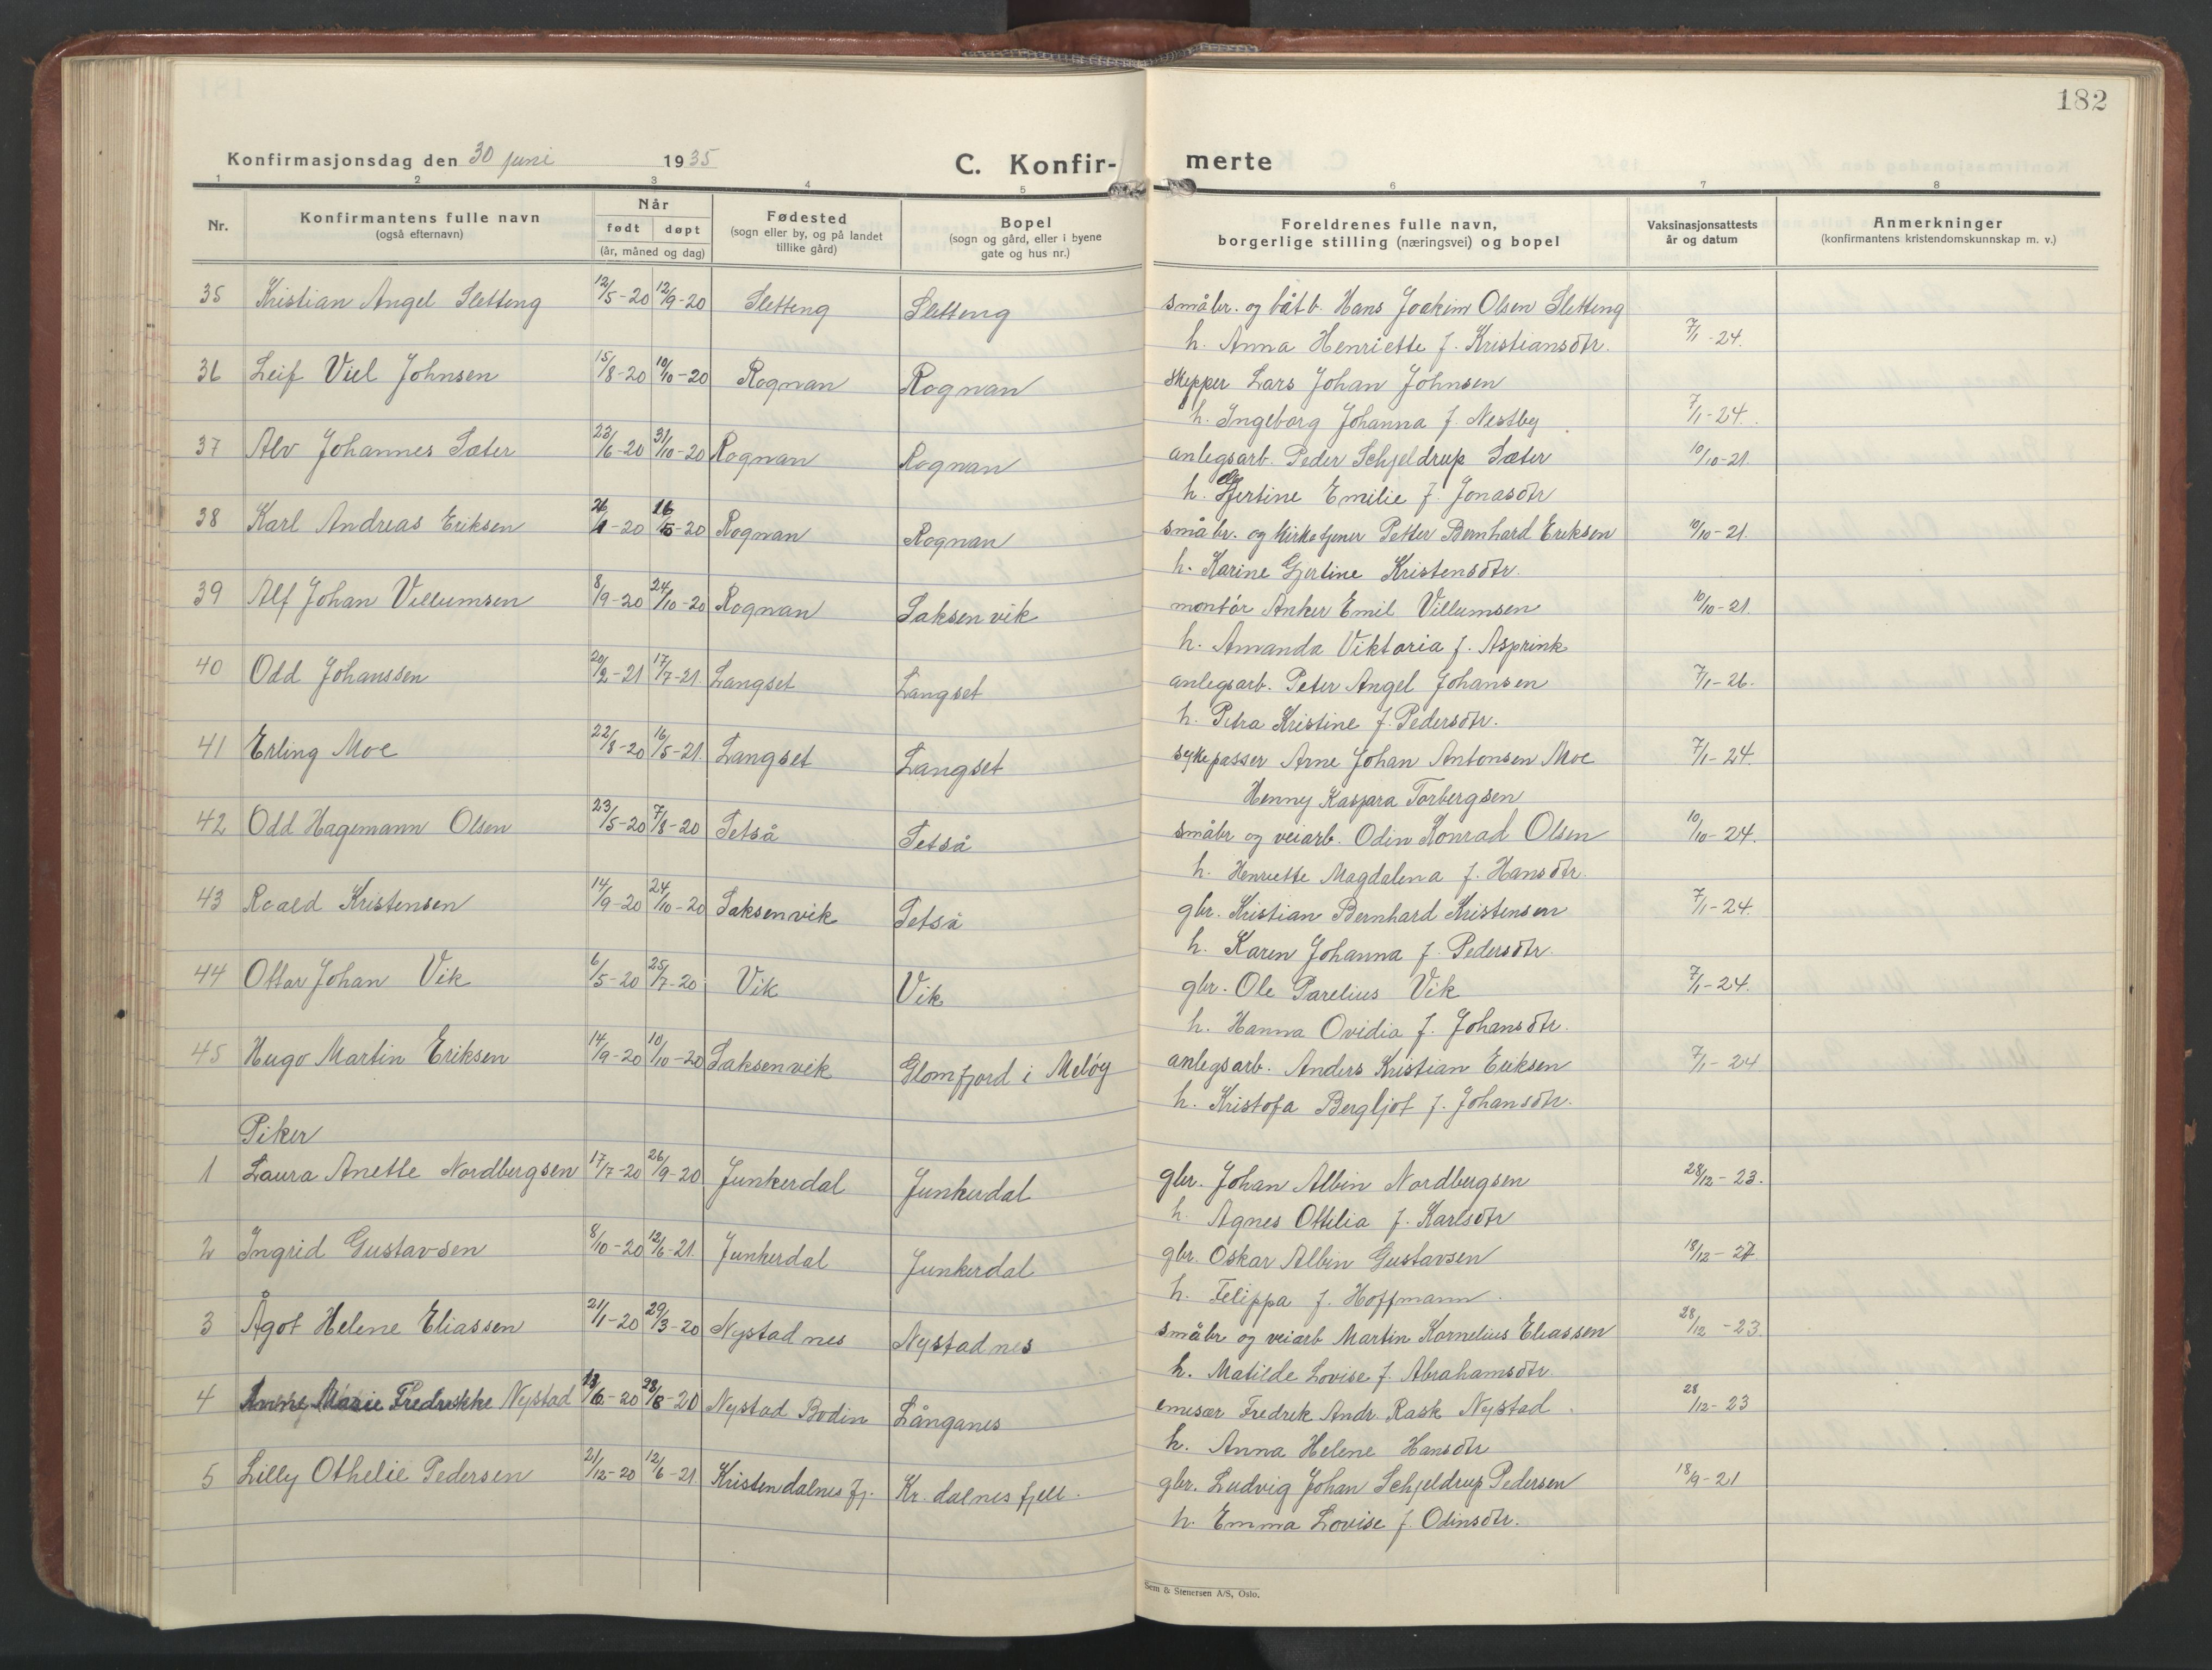 182
Konfirmasjonsdag den 30 juni 1935 C. Konfir- merte
1 2 3 4 5 6 7 8
Nr. Konfirmantens fulle navn (også efternavn) Når født døpt (år, måned og dag) Fødested (sogn eller by, og på landet tillike gård) Bopel (sogn og gård, eller i byene gate og hus nr.) Foreldrenes fulle navn, borgerlige stilling (næringsvei) og bopel Vaksinasjonsattests år og datum Anmerkninger (konfirmantens kristendomskunnskap m. v.)
35 Kristian Angel Sletteng 12/5-20 12/9-20 Sletteng Sletteng småbr. og båtb. Hans Joakim Olsen Sletteng
h. Anna Henriette f. Kristiansdtr. 7/1-24.
36 Leif Viel Johnsen 15/8-20 10/10-20 Rognan Rognan skipper Lars Johan Johnsen
h. Ingeborg Johanna f. Nestby 7/1-24.
37 Alv Johannes Sæter 23/6-20 31/10-20 Rognan Rognan anlegsarb. Peder Schjeldrup Sæter 10/10-21.
h. Emilie f. Jonasdtr
38 Karl Andreas Eriksen 26/1-20 16/5-20 Rognan Rognan småbr. og kirketjener Petter Bernhard Eriksen 10/10-21.
h. Karine Gjertine Kristensdtr.
39 Alf Johan Villumsen 8/9-20 24/10-20 Rognan Saksenvik montør Anker Emil Villumsen 10/10-21.
h. Amanda Viktoria f. Asprink
40 Odd Johanssen 20/2-21 17/7-21. Langset Langset anlegsarb. Peter Angel Johansen 7/1-26.
h. Petra Kristine f. Pedersdtr.
41 Erling Moe 22/8-20 16/5-21. Langset Langset sykepasser Arne Johan Antonsen Moe 7/1-24.
Henny Kaspara Torbergsen
42 Odd Hagemann Olsen 23/5-20 7/8-20 Setså Setså småbr og veiarb. Odin Konrad Olsen 10/10-24.
h. Henriette Magdalena f. Hansdtr.
43 Roald Kristensen 14/9-20 24/10-20 Saksenvik Setså gbr. Kristian Bernhard Kristensen 7/1-24.
h. Karen Johanna f. Pedersdtr.
44 Ottar Johan Vik 6/5-20 25/7-20 Vik Vik gbr. Ole Parelius Vik 7/1-24.
h. Hanna Ovidia f. Johansdtr.
45 Hugo Martin Eriksen 14/9-20 10/10-20 Saksenvik Glomfjord i Meløy anlegsarb. Anders Kristian Eriksen 7/1-24
h. Kristofa Bergljot f. Johansdtr.
Piker
1 Laura Anette Nordbergsen 17/7-20 26/9-20 Junkerdal Junkerdal gbr. Johan Albin Nordbergsen 28/12-23.
h. Agnes Ottilia f. Karlsdtr
2 Ingrid Gustavsen 8/10-20 12/6-21. Junkerdal Junkerdal gbr. Oskar Albin Gustavsen 18/12-27
h. Felippa f. Hoffmann.
3 Ågot Helene Eliassen 21/1-20 29/3-20 Nystadnes Nystadnes småbr og veiarb Martin Kornelius Eliassen 28/12-23.
h. Matilde Lovise f. Abrahamsdtr.
4 Anne Marie Fredrikke Nystad 13/6-20 28/8-20 Nystad Bodin Långanes emisær Fredrik Andr. Rask Nystad. 28/12-23
h. Anna Helene Hansdtr
5 Lilly Othelie Pedersen 21/12-20 12/6-21. Kristendalnes fj. Kr. dalnes fjell. gbr. Ludvig Johan Schjeldrup Pedersen 18/9-21
h. Emma Lovise f Odinsdtr.
Sem & Stenersen A/S, Oslo.